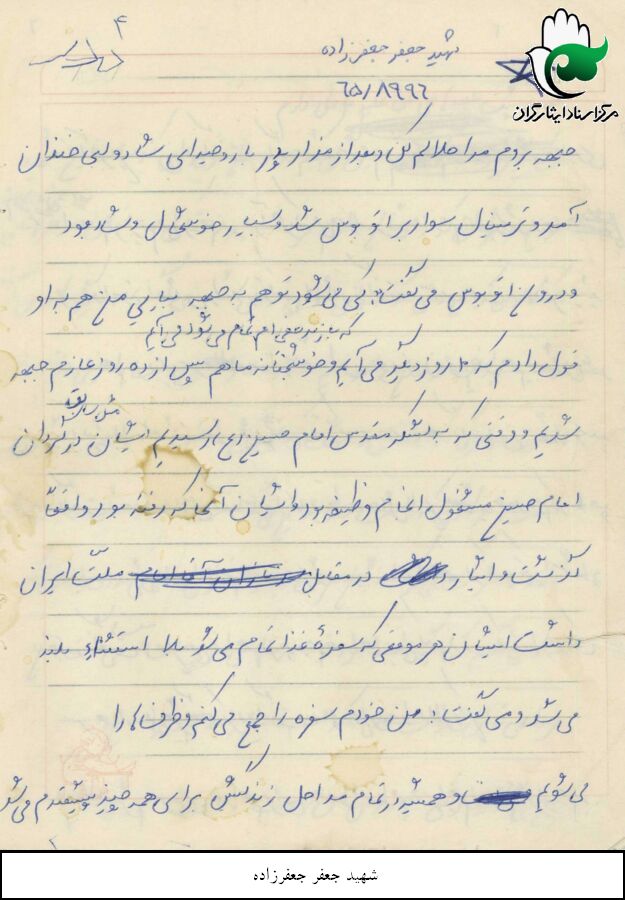 ۴
شهید جعفر جعفرزاده
۶۵/۸۹۹۶
مرکز اسناد ایثارگران
جبهه بروم مرا حلالم کن و بعد از مزار پدر با روحیه‌ای شاد و لبی خندان
آمد و ترمینال سوار بر اتوبوس شد و بسیار خوشحال و شاد بود
و در داخل اتوبوس می گفت: کی می شود تو هم به جبهه بیایی من هم به او
که تمام می شود می آیم
قول دادم که ۱۰ روز دیگر می آیم و خوشبختانه ما هم پس از ده روز عازم جبهه
مثل سابق
شدیم و وقتی که به لشکر مقدس امام حسین (ع) رسیدیم ایشان در گردان
امام حسین مشغول انجام وظیفه بود و ایشان آنجا که رفته بود واقعاً
گذشت و ایثار در مقابل ملت ایران
داشت ایشان هر موقعی که سفرهٔ غذا تمام می شد بلا استثناء بلند
می شد و می گفت: من خودم سفره را جمع می کنم و ظرف ها را
می شویم و همیشه در تمام مراحل زندگیش برای همه چیز پیشقدم می شد
شهید جعفر جعفرزاده